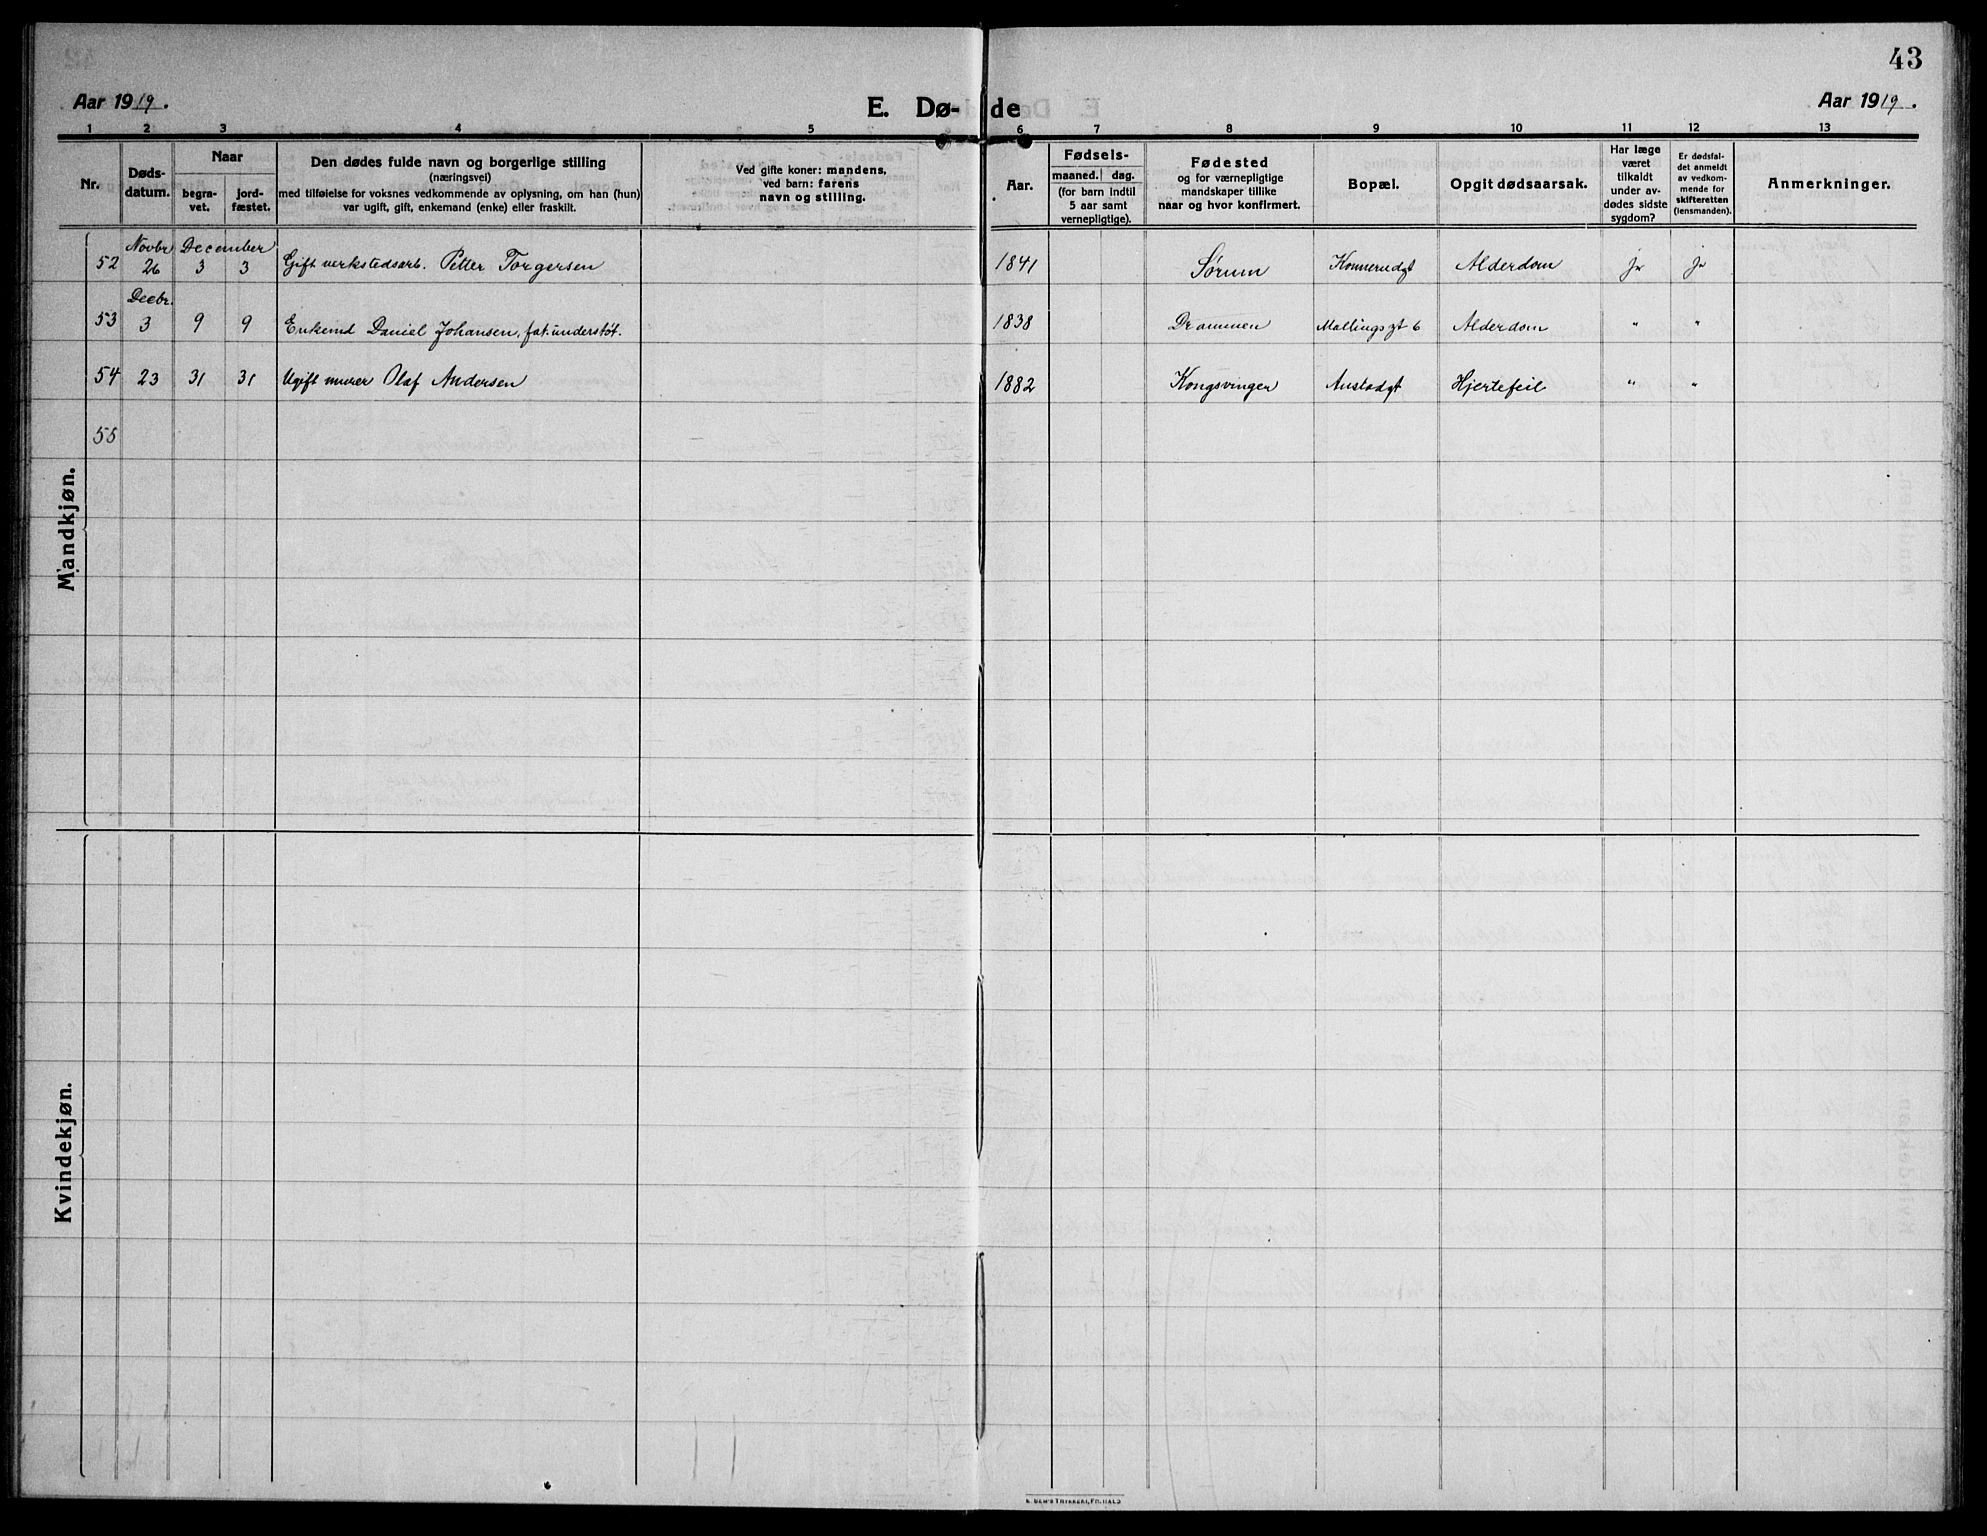 43
Aar 1919.
E. Dø- de
Aar 1919.
1 2 3 4 5 6 7 8 9 10 11 12 13
Nr.
Døds-
datum.
Naar
begra-
vet.
jord-
fæstet.
Den dødes fulde navn og borgerlige stilling
(næringsvei)
med tilføielse for voksnes vedkommende av oplysning, om han (hun)
var ugift, gift, enkemand (enke) eller fraskilt.
Ved gifte koner: mandens,
ved barn: farens
navn og stilling.
Aar.
Fødsels-
maaned. dag.
(for barn indtil
5 aar samt
vernepligtige).
Fødested
og for værnepligtige
mandskaper tillike
naar og hvor konfirmert.
Bopæl.
Opgit dødsaarsak.
Har læge
været
tilkaldt
under av-
dødes sidste
sygdom?
Er dødsfal-
det anmeldt
av vedkom-
mende for
skifteretten
(lensmanden).
Anmerkninger.
Novbr December
52 26 3 3 Gift verkstedsarb. Petter Torgersen 1841 Sørum Konnerudgt Alderdom ja ja
Decbr.
53 3 9 9 Enkemd Daniel Johansen, fat. understøt. 1838 Drammen Mallingsgt 6 Alderdom " "
54 23 31 31 Ugift murer Olaf Andersen 1882 Kongsvinger Austadgt Hjertefeil " "
55
Mandkjøn.
Kvindekjøn.